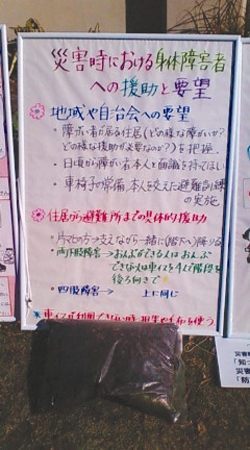 災害時における身体障害者
への援助と要望
地域や自治会への要望
・障がい者が居る住居(どの様な障がいか?
どの様な援助が必要なのか?)を把握
・日頃から障がい者本人と面識を持てほしい
・車椅子の常備、本人を交えた避難訓練
の実施
住居から避難所までの具体的援助
・片マヒの方→支えながら一緒に(階下へ)降りる
・両下肢障害→おんぶができる人はおんぶ
できない人は車イスを4人で階段を
後ろ向きで
・四肢障害→ 上に同じ
車イスが利用できない時
を使う
災害
「知っ
災害
「防